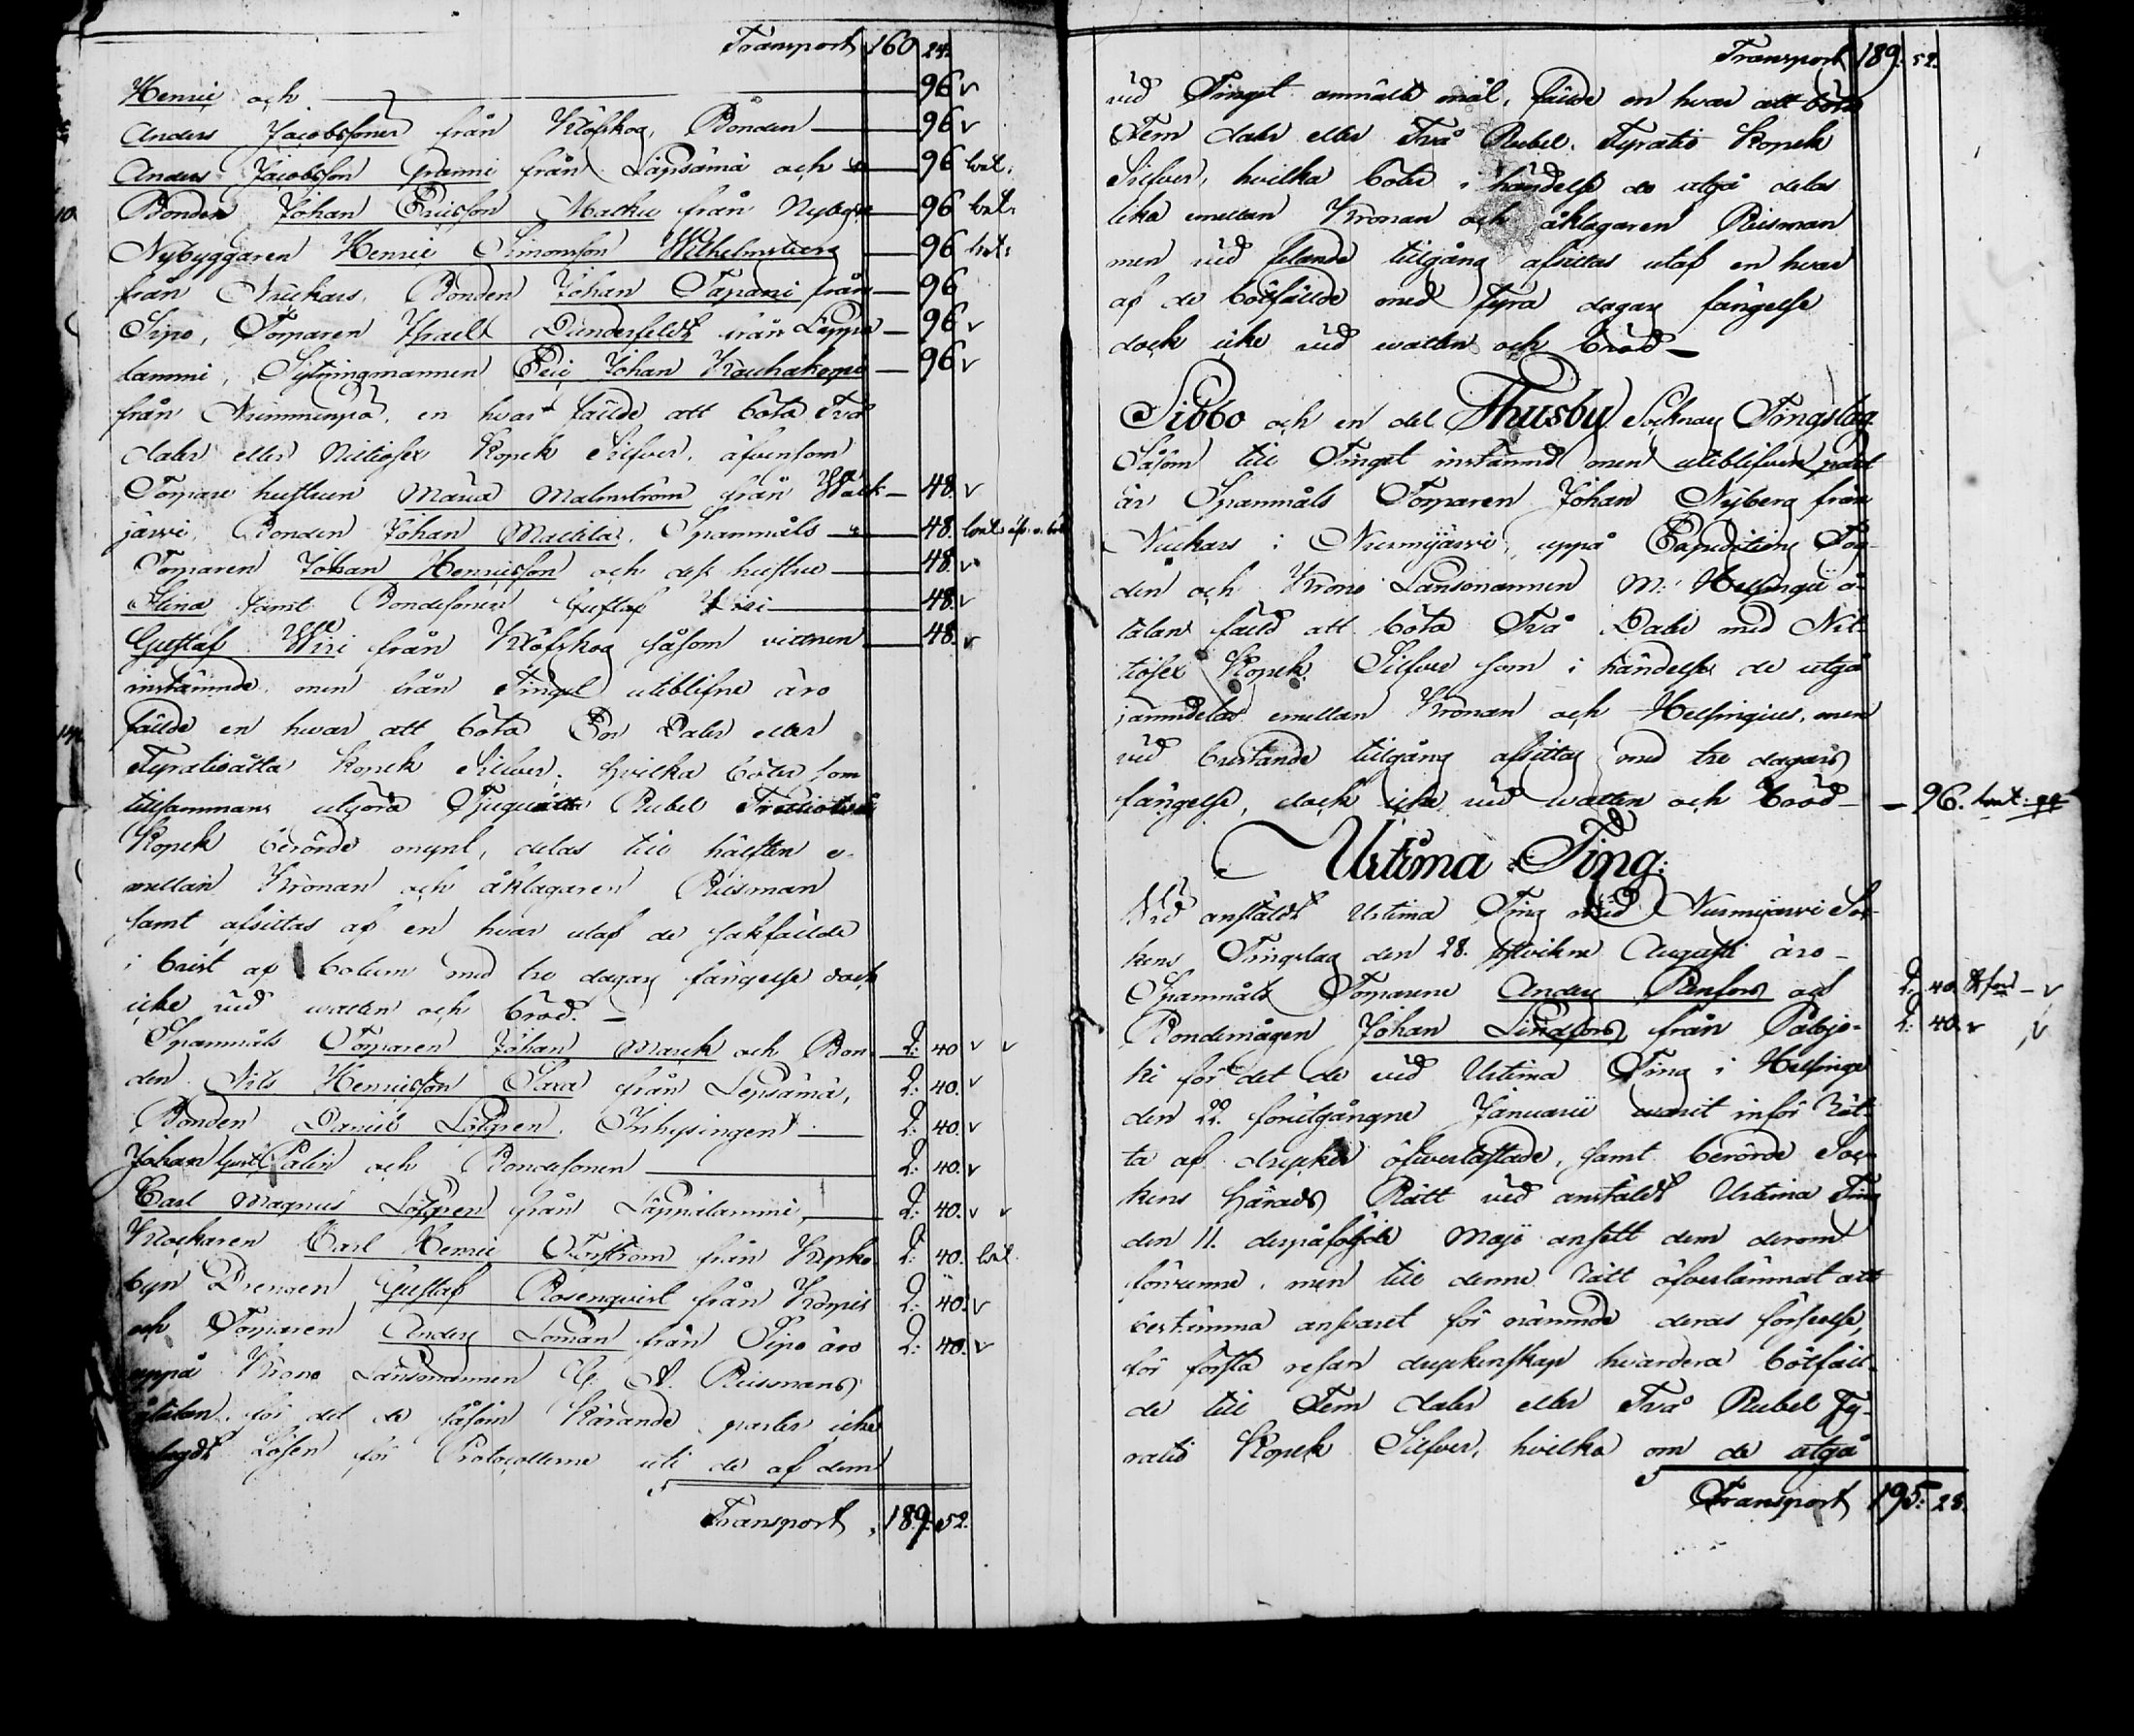 Transport 160 24.
Henric och 96 v
Anders Jacobssoner från Klöfskog, Bonden 96 v
Anders Jacobsson Granni från Läpsämä och 96 bet.
Bonden Johan Ericsson Mackui från Nybyn 96 bet.
Nybyggaren Henric Simonsson Wilhelmsberg 96 bet.
från Nuckars, Bonden Johan Tapani från 96
Sipo, Torparen Israel Dunderfeldt från Leppä- 96 v
lammi, Sytningmannen Eric Johan Kauhakorpi 96 v
från Nummenpä, en hvar fälde att böta Två
daler eller Nittiosex Kopek Silfver, äfvensom
Torpare hustrun Maria Malmström från Walk- 48. v
järvi, Bonden Johan Mattila, Spanmåls 48. bet.
Torparen Johan Henricsson och dess hustru 48. v
Stina samt Bondesonen Gustaf Wiri 48. v
Gustaf Wiri från Klöfskog såsom vittnen 48. v
instämnde, men från Tinget utiblifne äro
fälde en hvar att böta En Daler eller
Fyratioåtta Kopek Silfver; hvilka böter som
tillsammans utgöra Tjuguåtta Rubel
Kopek berörde mynt, delas till hälften e-
mellan Kronan och åklagaren Riisman
samt afsittas af en hvar utaf de sakfälde
i brist af botum med tre dagars fängelse dock
icke vid watten och bröd. —
Spanmåls Torparen Johan Marck och Bon- 2: 40 v v
den Nils Henricsson Saxa från Lepsämä, 2: 40. v
Bonden Daniel Löfgren, Inhysingen 2: 40. v
Johan Gust. Palin och Bondesonen 2: 40. v
Carl Magnus Löfgren från Läppälammi, 2: 40. v v
Klockaren Carl Henric Forsström från Kyrko 2: 40. bet.
byn Drengen Gustaf Rosenqvist från Krõpis 2: 40. v
och Torparen Anders Loman från Sipo äro 2: 40. v
uppå Krono Länsmannen C. A. Riismans
åtalan, för det de såsom Kärande parter icke
Lösen för Protocollerne uti de af dem
Transport 189. 52.
Transport 189. 52.
vid Tinget anmälte mål, fälde en hvar att böta
Fem daler eller Två Rubel Fyratio Kopek
Silfver, hvilka böter i händelse de utgå delas
lika emellan Kronan och åklagaren Riisman
men vid felande tillgång afsittas utaf en hvar
af de bötfälde med fyra dagars fängelse
dock icke vid watten och bröd —
Sibbo och en del Thusby Socknars Tingslag
Såsom till Tinget instämnd men utiblifven part
är Spanmåls Torparen Johan Nyberg från
Nuckars i Nurmijärvi, uppå Expeditions Fog-
den och Krono Länsmannen M: Helsingii å-
talan fäld att böta Två Daler med Nit-
tiosex Kopek Silfver som i händelse de utgå
jämndelas emellan Kronan och Helsingius, men
vid bristande tillgång afsittas med tre dagars
fängelse, dock icke vid watten och bröd — 96. bet.
Urtima Ting:
Vid anstäldt Urtima Ting med Nurmijärvi Soc-
kens Tingslag den 28. sistvikne Augusti äro —
Spanmåls Torparene Anders Renfors och 2: 40. v
Bondemågen Johan Lindfors från Palojo- 2: 40. v v
ki för det de vid Urtima Ting i Helsinge
den 22. förutgångne Januarii warit inför Rät-
ta af dryckes öfverlastade, samt berörde Soc-
kens Härads Rätt vid anstäldt Urtima Ting
den 11. derpåföljde Maji ansett dem derom
förvunne, men till denne Rätt öfverlämnat att
bestämma answaret för nämnde deras förseelse,
för första resan dryckenskap hvardera bötfäl-
de till Fem daler eller Två Rubel Fy-
ratio Kopek Silfver, hvilka om de utgå
Transport 195. 28.